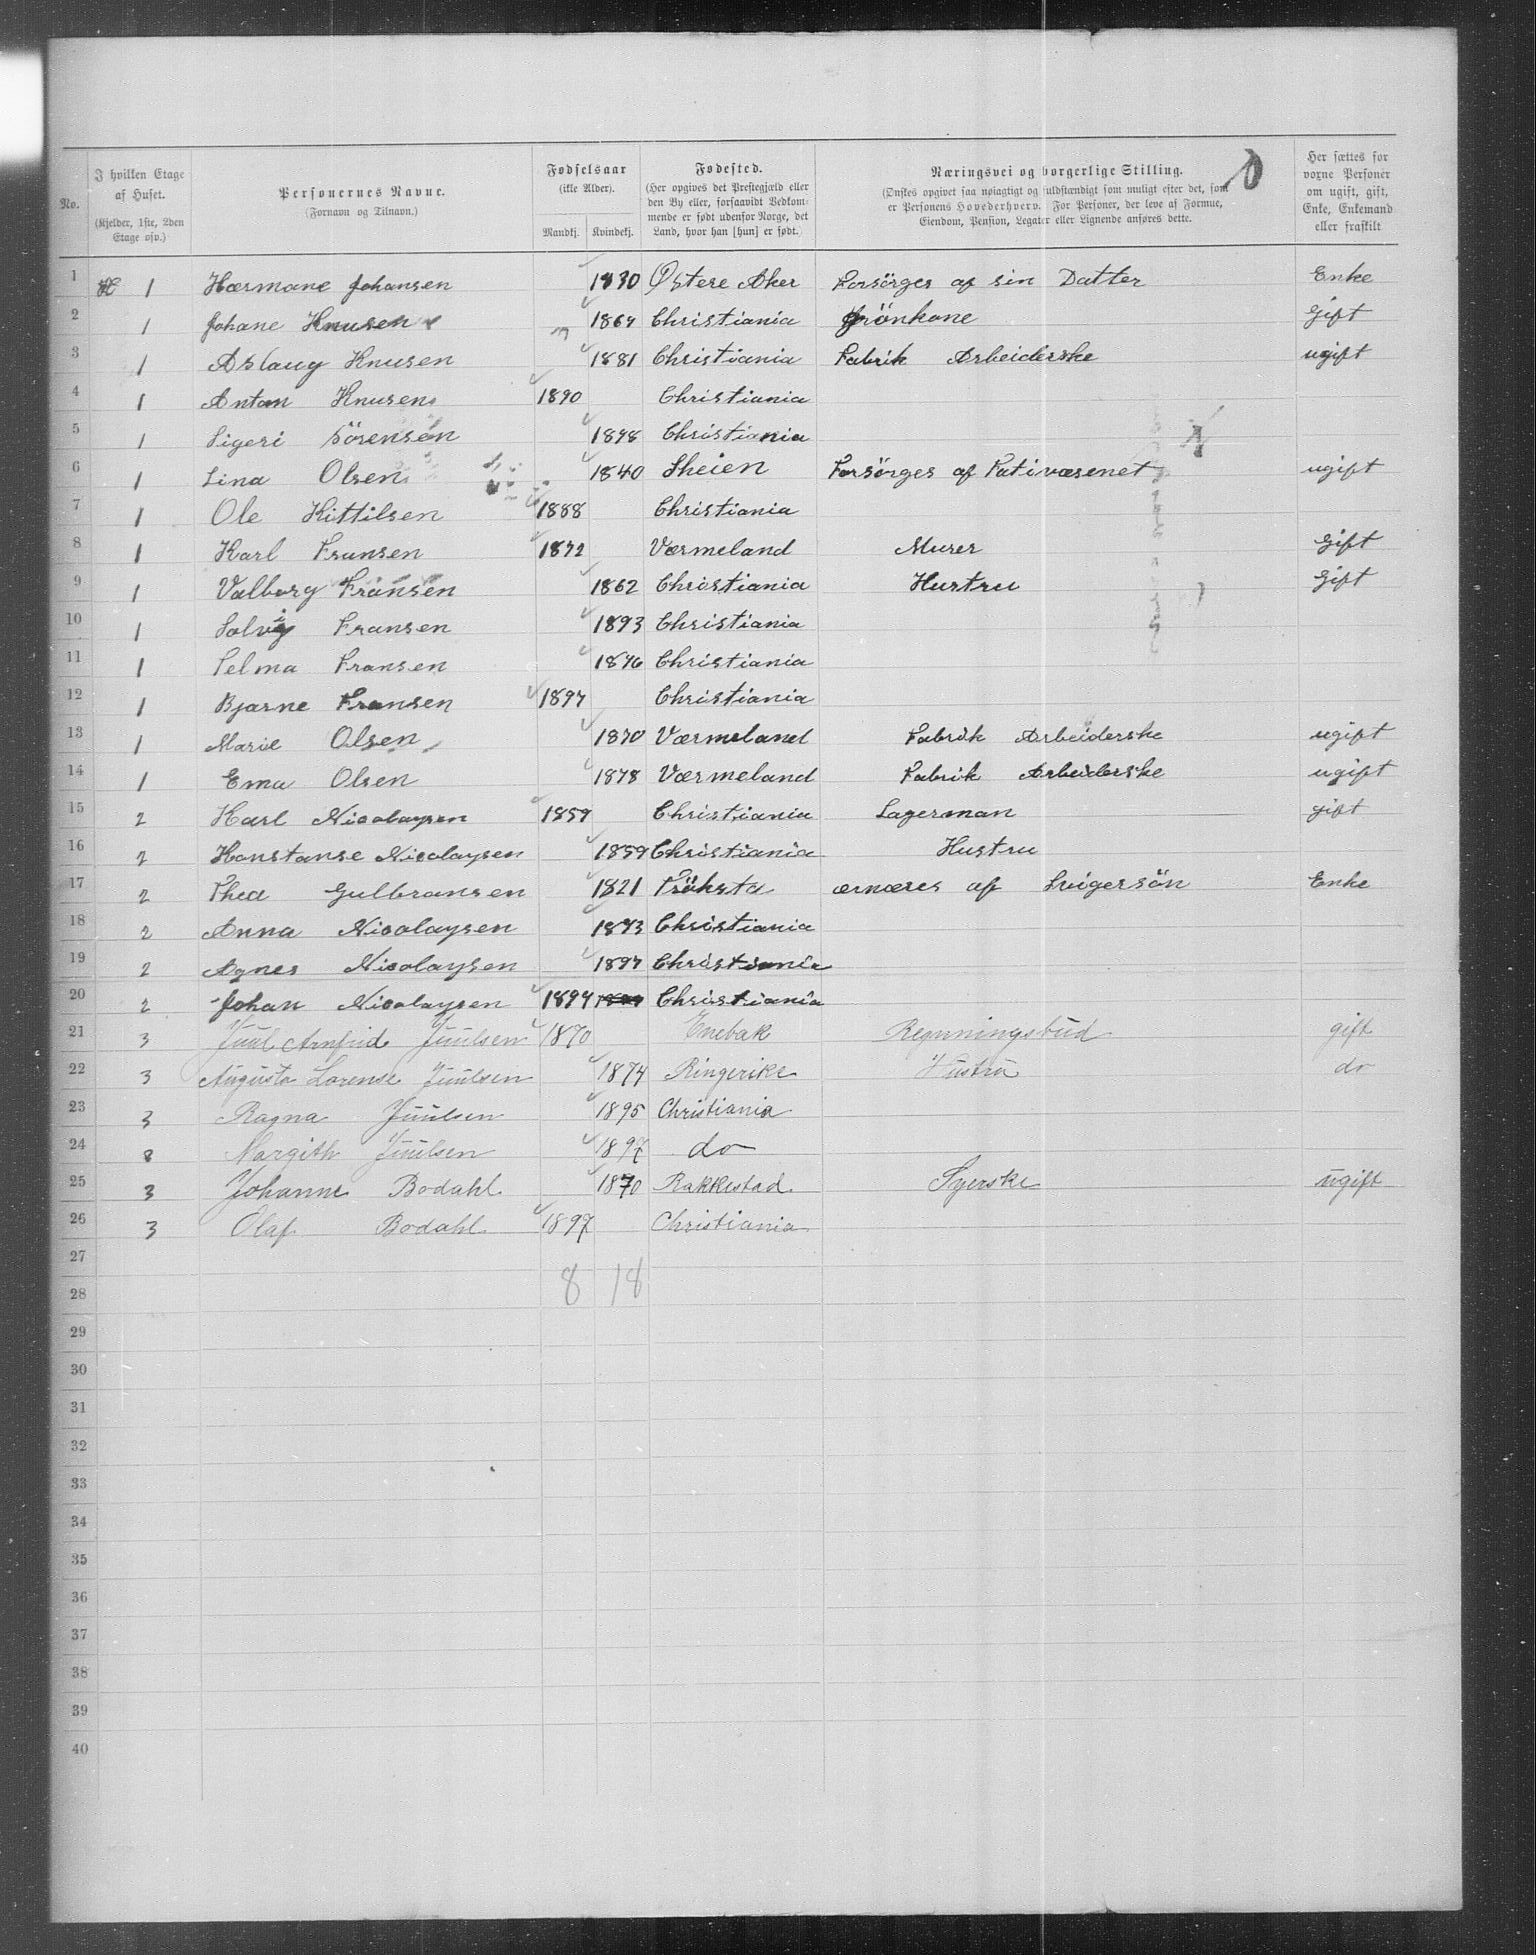 No. | I hvilken Etage af Huset. (Kjelder, 1ste, 2den Etage osv.) | Personernes Navne. (Fornavn og Tilnavn.) | Fødselsaar (ikke Alder). Mandkj. Kvindekj. | Fødested. (Her opgives det Prestegjæld eller den By eller, forsaavidt Vedkommende er født udenfor Norge, det Land, hvor han [hun] er født.) | Næringsvei og borgerlige Stilling. (Ønskes opgivet saa nøiagtigt og fuldstændigt som muligt efter det, som er Personens Hovederhverv. For Personer, der leve af Formue, Eiendom, Pension, Legater eller Lignende anføres dette.) | Her sættes for voxne Personer om ugift, gift, Enke, Enkemand eller fraskilt
1 1 Hærmane Johansen 1830 Østere Aker Forsörges af sin Datter Enke
2 1 Johane Knusen 1864 Christiania Grönkone Gift
3 1 Aslaug Knusen 1881 Christiania Fabrik Arbeiderske ugift
4 1 Anton Knusen 1890 Christiania
5 1 Sigeri Sörensen 1898 Christiania
6 1 Lina Olsen 1840 Skeien Forsörges af Fativæsenet ugift
7 1 Ole Kittilsen 1888 Christiania
8 1 Karl Fransen 1872 Værmeland Murer Gift
9 1 Valborg Fransen 1862 Christiania Hustru Gift
10 1 Solvig Fransen 1893 Christiania
11 1 Selma Fransen 1896 Christiania
12 1 Bjarne Fransen 1897 Christiania
13 1 Marie Olsen 1870 Værmeland Fabrik Arbeiderske ugift
14 1 Ema Olsen 1878 Værmeland Fabrik Arbeiderske ugift
15 2 Karl Nicolaysen 1859 Christiania Lagerman gift
16 2 Konstanse Nicolaysen 1859 Christiania Hustru
17 2 Thea Gulbransen 1821 Tröksta ærnæres af Svigersön Enke
18 2 Anna Nicolaysen 1893 Christiania
19 2 Agnes Nicolaysen 1897 Christiania
20 2 Johan Nicolaysen 1894 Christiania
21 3 Juul Arnfrid Juulsen 1870 Enebak Regnningsbud gift
22 3 Augusta Lorense Juulsen 1874 Ringerike Hustru do
23 3 Ragna Juulsen 1895 Christiania
24 3 Margith Juulsen 1897 do
25 3 Johanne Bodahl 1870 Rakkestad Syerske ugift
26 3 Olaf Bodahl 1897 Christiania
27
28 8 18
29
30
31
32
33
34
35
36
37
38
39
40